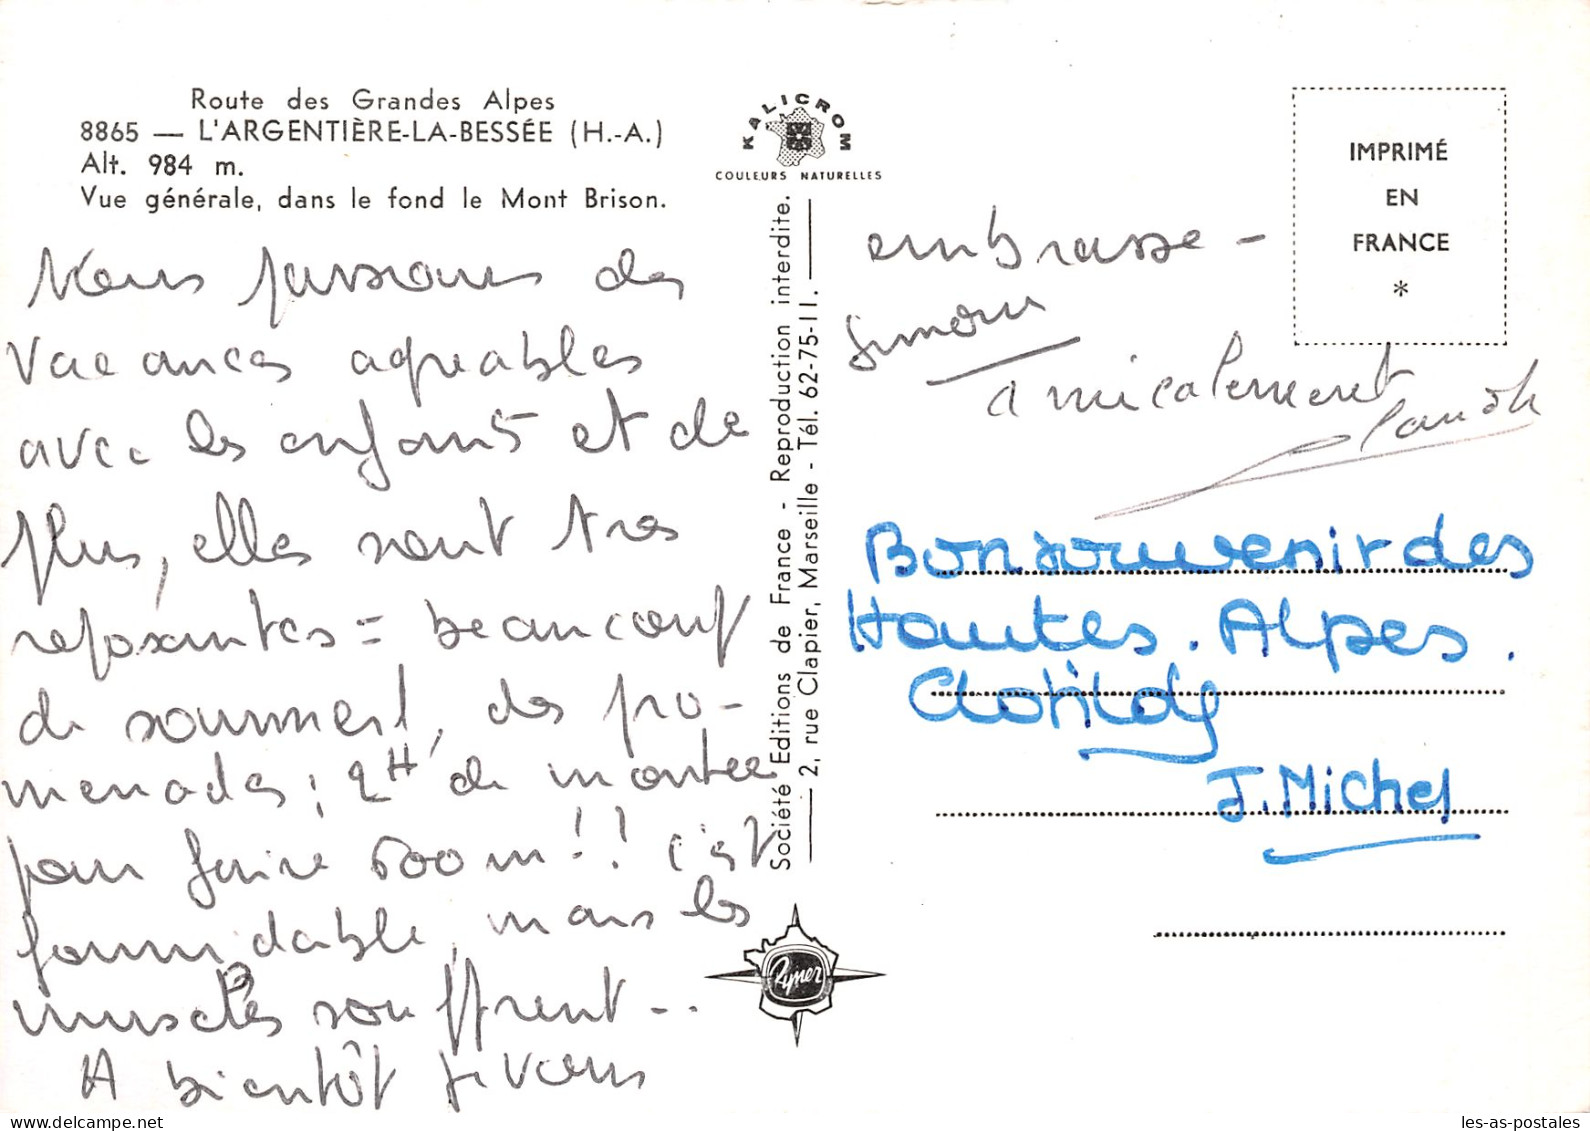 Route des Grandes Alpes
8865 — L'ARGENTIÈRE-LA-BESSÉE (H.-A.)
Alt. 984 m.
Vue générale, dans le fond le Mont Brison.
Nous passons des
vacances agréables
avec les enfants et de
plus, elles sont très
reposantes = beaucoup
de sommeil, des pro-
menades ; 2H de montée
pour faire 600 m !! c'est
formidable, mais les
muscles souffrent ..
A bientôt je vous
embrasse -
Simone
amicalement
KALICROM
COULEURS NATURELLES
Société Editions de France - Reproduction interdite.
2, rue Clapier, Marseille - Tél. 62-75-11.
Rymer
IMPRIMÉ
EN
FRANCE
*
Bon souvenir des
Hautes.Alpes.
Clotilde
J.Michel
les-as-postales